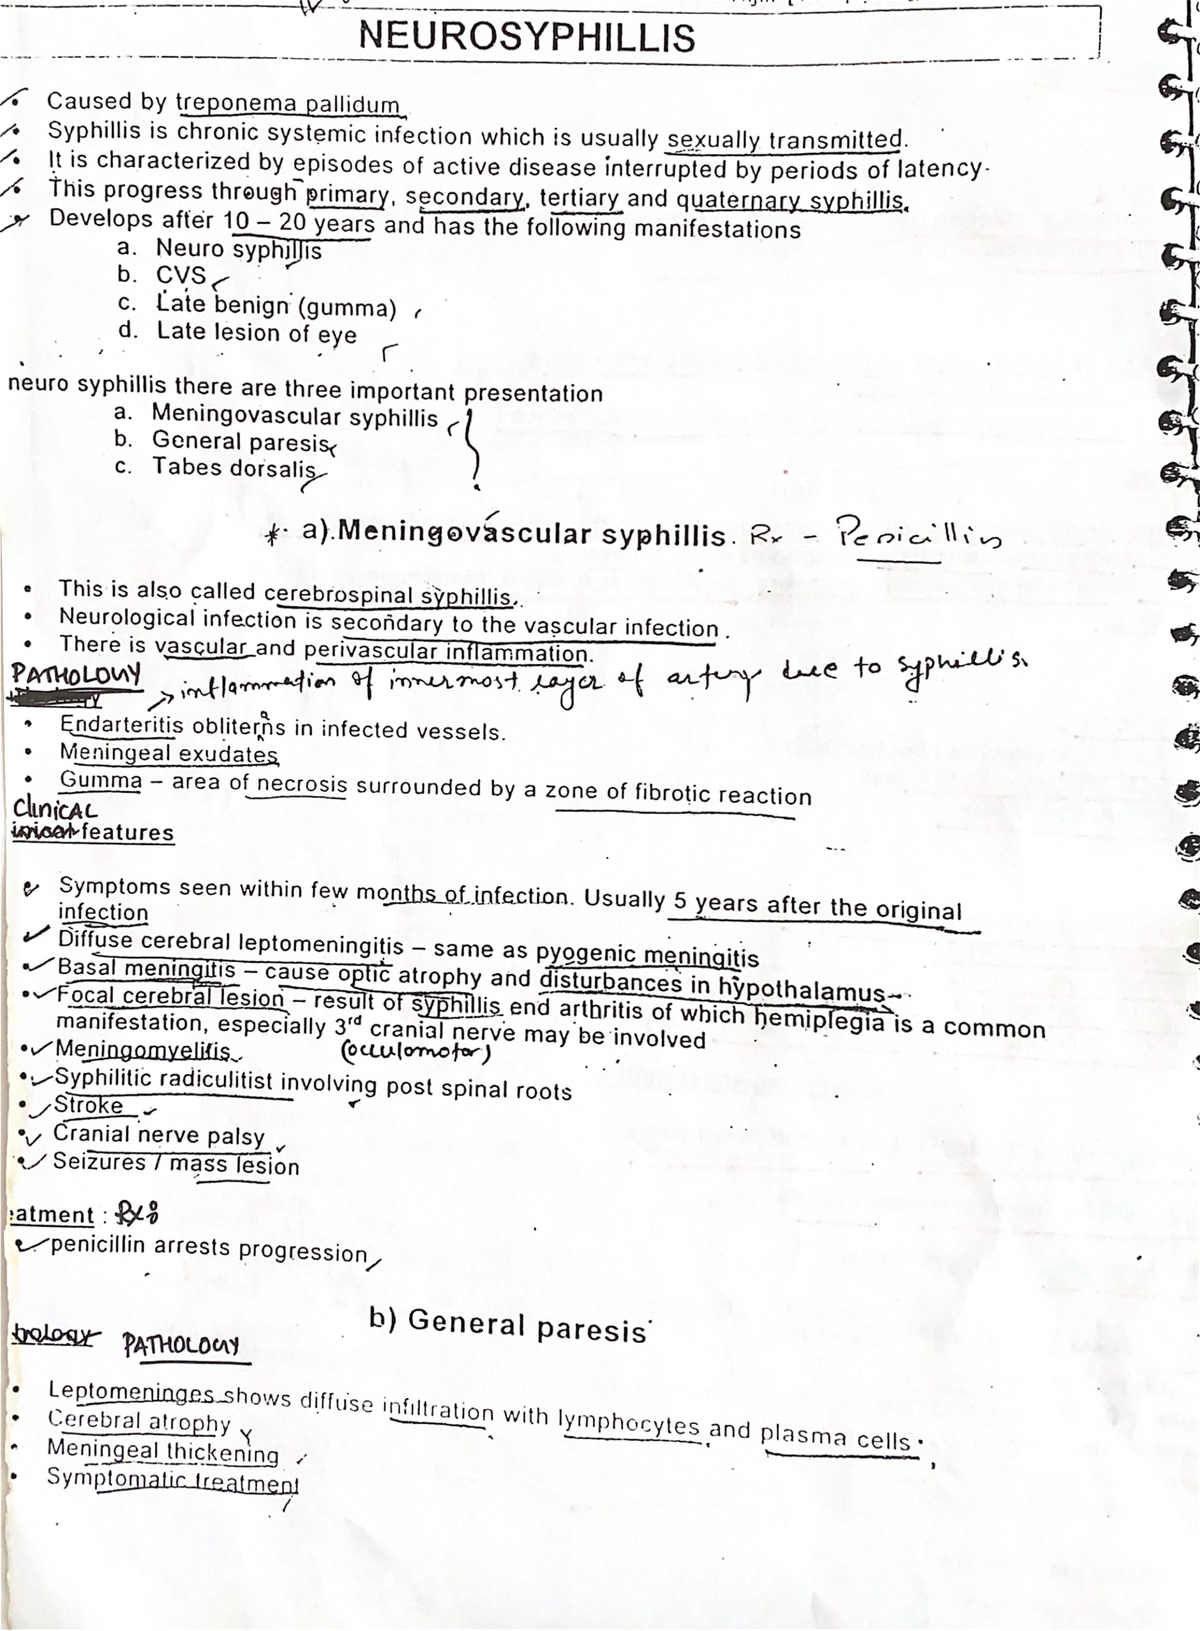 NEUROSYPHILLIS
• Caused by treponema pallidum
• Syphillis is chronic systemic infection which is usually sexually transmitted.
• It is characterized by episodes of active disease interrupted by periods of latency.
• This progress through primary, secondary, tertiary and quaternary syphillis.
• Develops after 10 – 20 years and has the following manifestations
a. Neuro syphillis
b. CVS
c. Late benign (gumma)
d. Late lesion of eye
neuro syphillis there are three important presentation
a. Meningovascular syphillis
b. General paresis
c. Tabes dorsalis
* a). Meningovascular syphillis. Rx - Penicillin
• This is also called cerebrospinal syphillis.
• Neurological infection is secondary to the vascular infection.
• There is vascular and perivascular inflammation.
PATHOLOGY
→ inflammation of innermost layer of artery due to syphillis.
• Endarteritis obliterans in infected vessels.
• Meningeal exudates
• Gumma – area of necrosis surrounded by a zone of fibrotic reaction
CliniCAL
features
• Symptoms seen within few months of infection. Usually 5 years after the original
infection
• Diffuse cerebral leptomeningitis – same as pyogenic meningitis
• Basal meningitis – cause optic atrophy and disturbances in hypothalamus
• Focal cerebral lesion – result of syphillis end arthritis of which hemiplegia is a common
manifestation, especially 3rd cranial nerve may be involved
(occulomotor)
• Meningomyelitis
• Syphilitic radiculitist involving post spinal roots
• Stroke
• Cranial nerve palsy
• Seizures / mass lesion
eatment : Rx:
• penicillin arrests progression
b) General paresis
PATHOLOGY
• Leptomeninges shows diffuse infiltration with lymphocytes and plasma cells
• Cerebral atrophy
• Meningeal thickening
• Symptomatic treatment